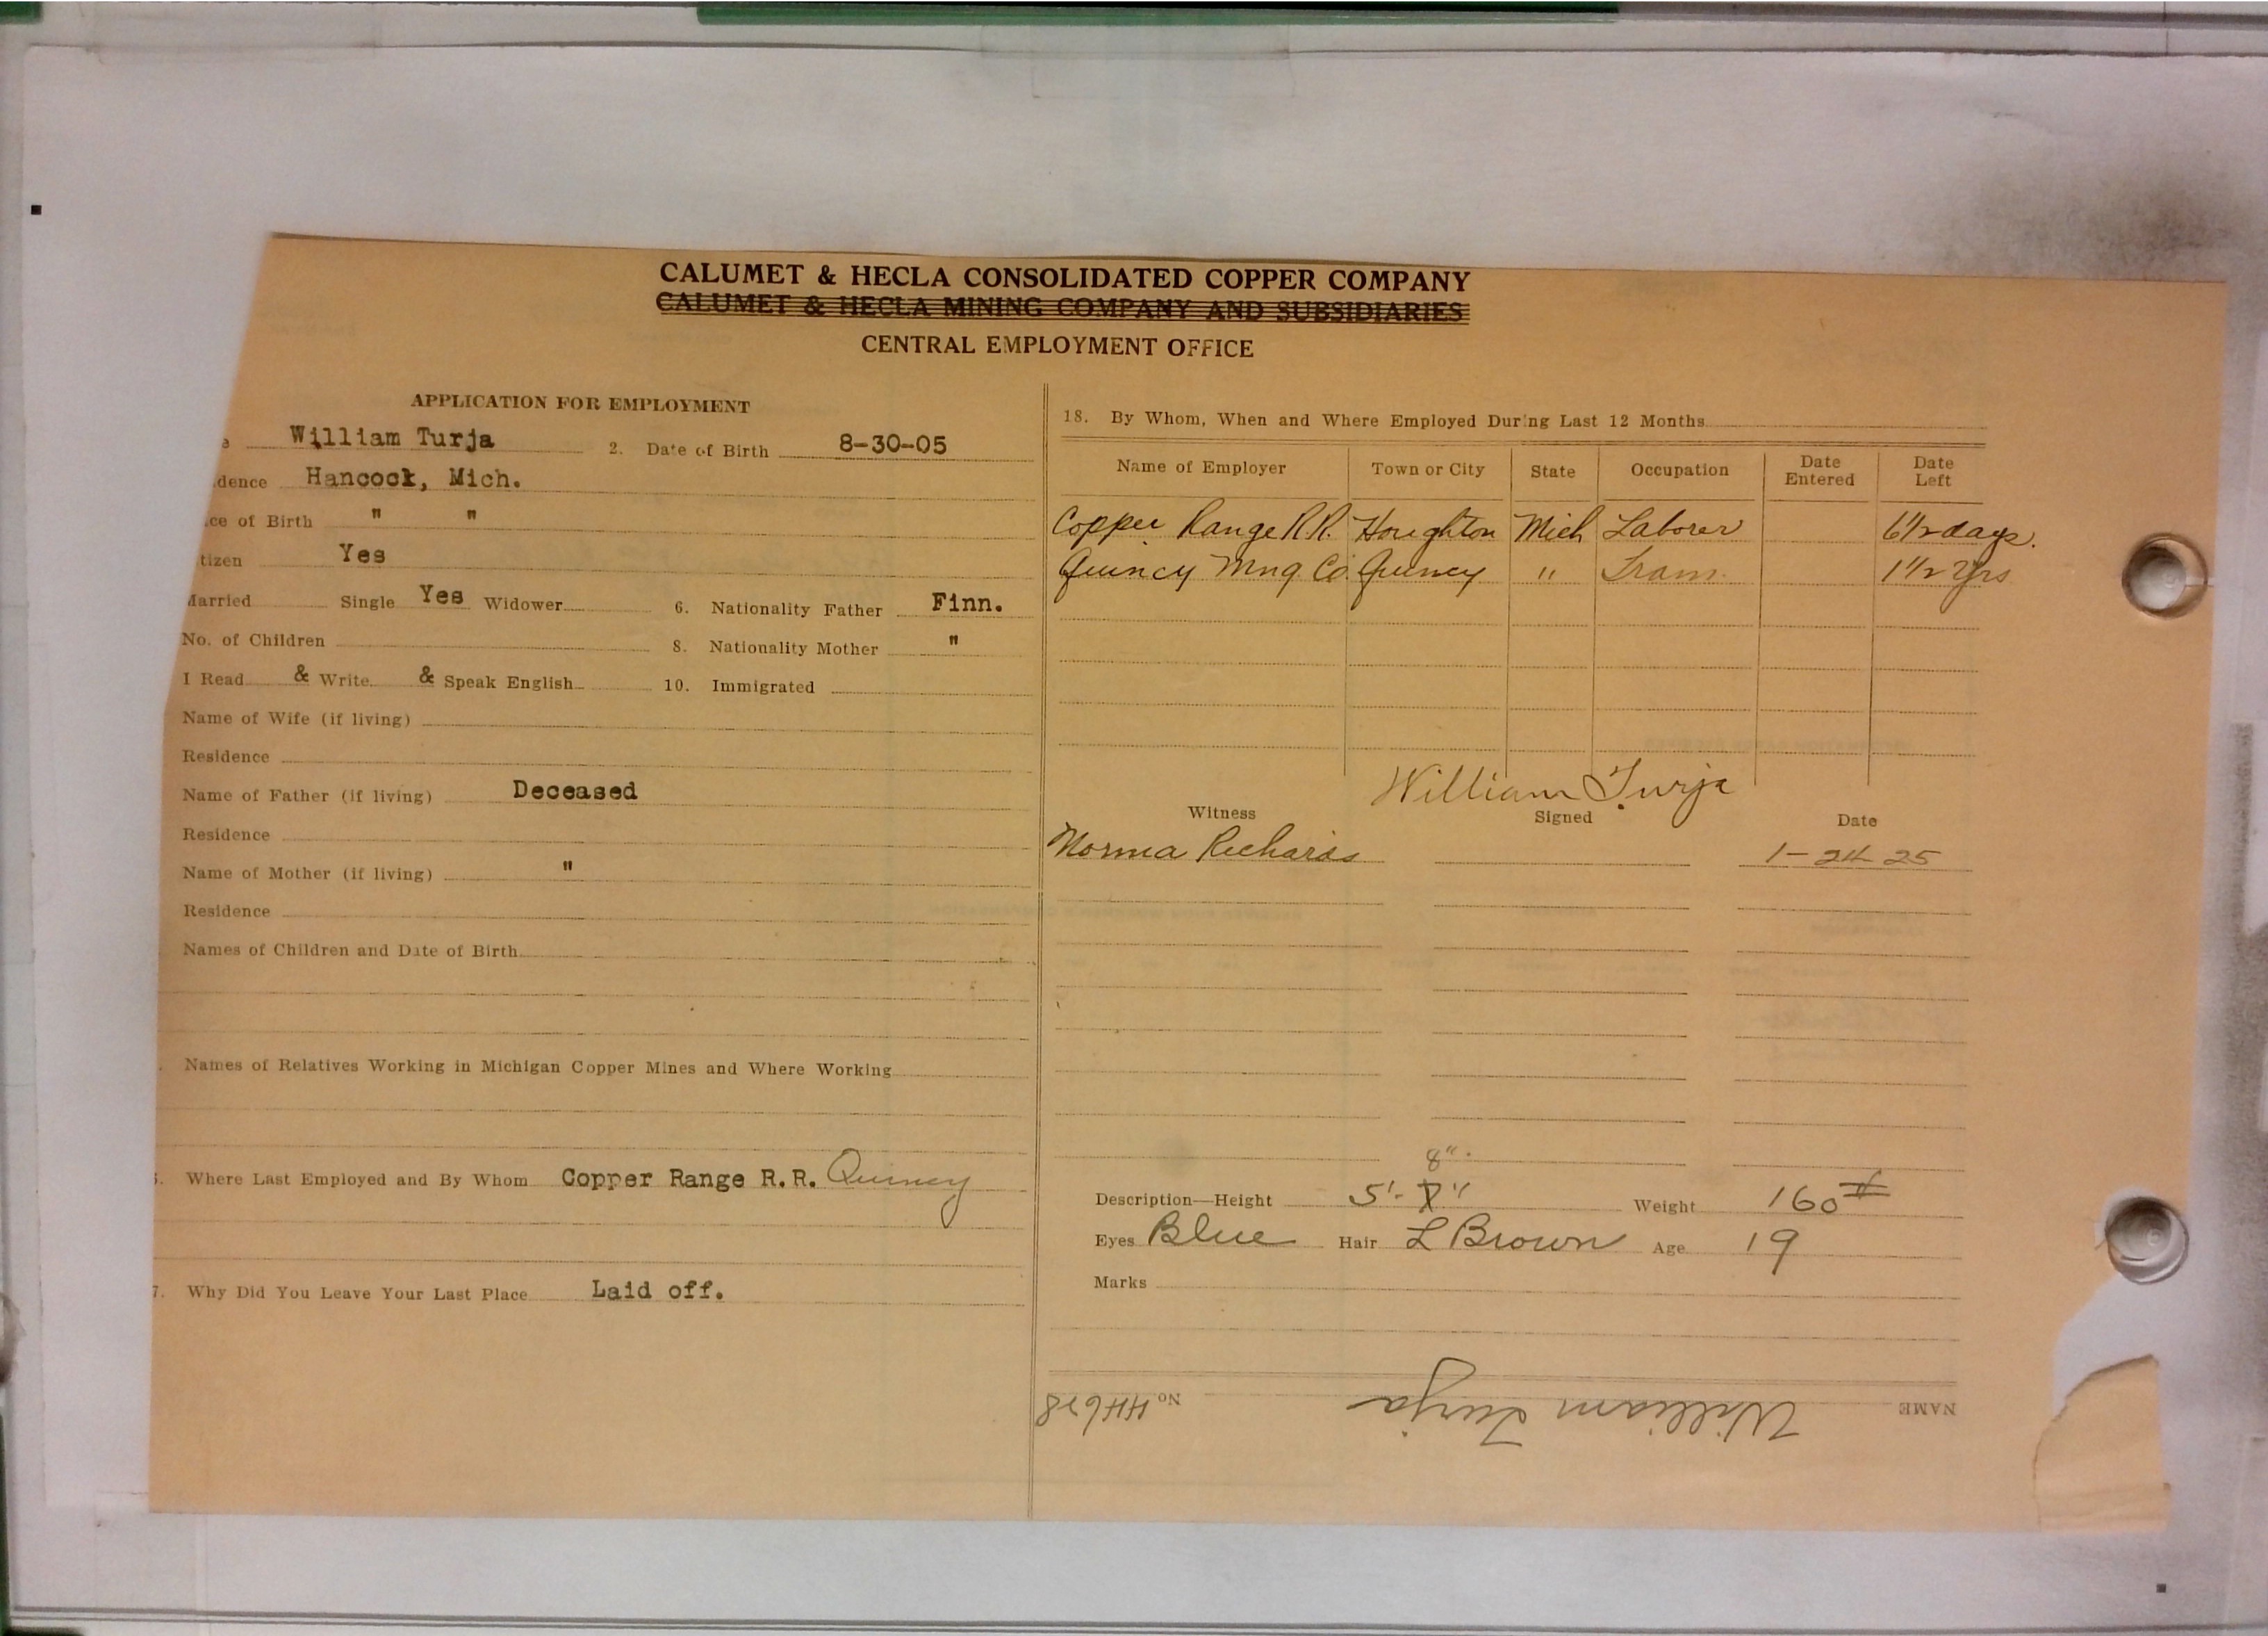 CALUMET & HECLA CONSOLIDATED COPPER COMPANY
CALUMET & HECLA MINING COMPANY AND SUBSIDIARIES
CENTRAL EMPLOYMENT OFFICE
APPLICATION FOR EMPLOYMENT
e William Turja 2. Date of Birth 8-30-05
dence Hancock, Mich.
ce of Birth " "
tizen Yes
Married Single Yes Widower 6. Nationality Father Finn.
No. of Children 8. Nationality Mother "
I Read & Write & Speak English 10. Immigrated
Name of Wife (if living)
Residence
Name of Father (if living) Deceased
Residence
Name of Mother (if living) "
Residence
Names of Children and Date of Birth
Names of Relatives Working in Michigan Copper Mines and Where Working
Where Last Employed and By Whom Copper Range R.R. Quincy
7. Why Did You Leave Your Last Place Laid off.
18. By Whom, When and Where Employed During Last 12 Months
Name of Employer Town or City State Occupation Date Entered Date Left
Copper Range R.R. Houghton Mich Laborer 6 1/2 days.
Quincy Mng Co Quincy " Tram. 1 1/2 Yrs
William Turja
Witness Signed Date
Norma Richards 1-24-25
8"
Description—Height 5'-7" Weight 160#
Eyes Blue Hair L Brown Age 19
Marks
NAME William Turja No HH628